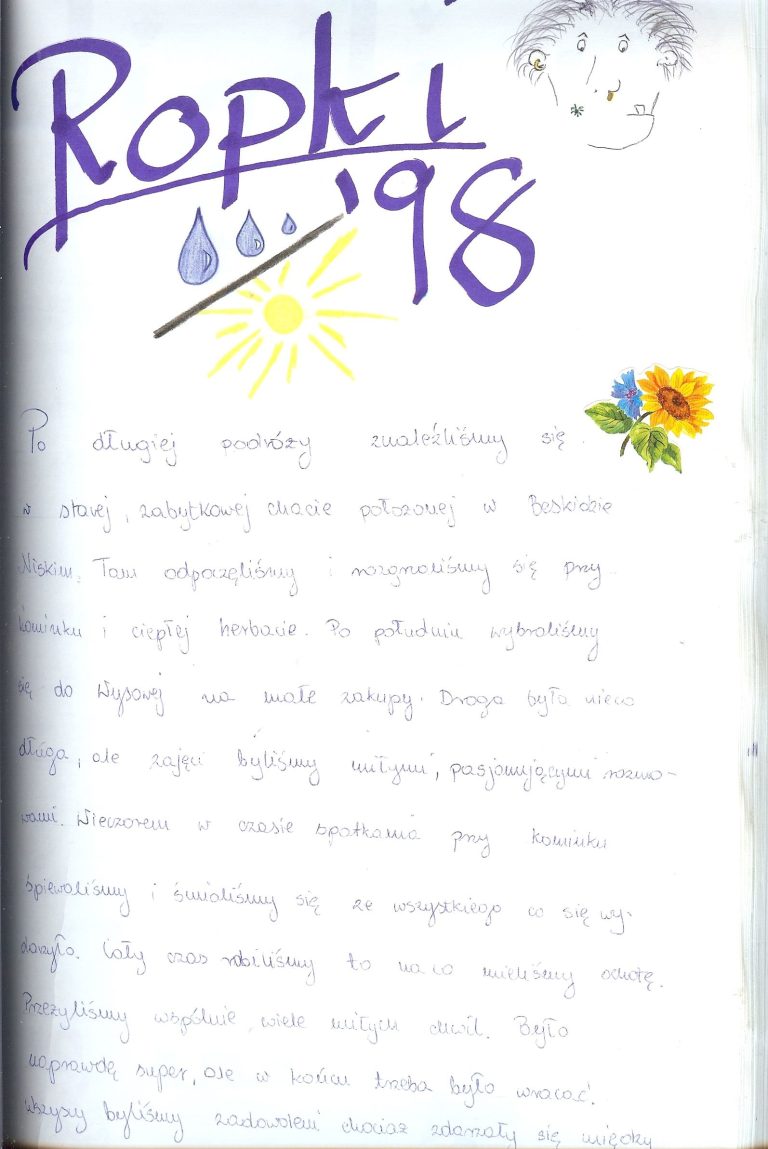 Ropki
'98
Po długiej podróży znaleźliśmy się
w starej, zabytkowej chacie położonej w Beskidzie
Niskim. Tam odpoczęliśmy i rozgrzaliśmy się przy
kominku i ciepłej herbacie. Po południu wybraliśmy
się do Wysowej na małe zakupy. Droga była nieco
długa, ale zajęci byliśmy miłymi, pasjonującymi rozmo-
wami. Wieczorem w czasie spotkania przy kominku
śpiewaliśmy i śmialiśmy się ze wszystkiego co się wy-
darzyło. Cały czas robiliśmy to na co mieliśmy ochotę.
Przeżyliśmy wspólnie, wiele miłych chwil. Było
naprawdę super, ale w końcu trzeba było wracać.
Wszyscy byliśmy zadowoleni chociaż zdarzały się między